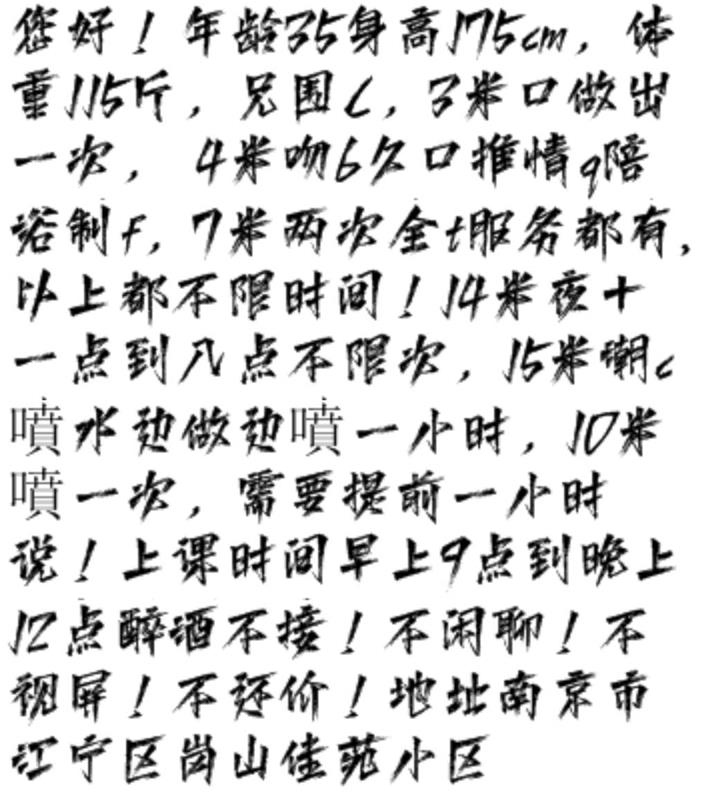 您好！年龄35身高175cm，体
重115斤，兄围C，3米口做出
一次，4米吻6久口推情q陪
浴制f，7米两次全t服务都有，
以上都不限时间！14米夜十
一点到八点不限次，15米潮c
噴水边做边噴一小时，10米
噴一次，需要提前一小时
说！上课时间早上9点到晚上
12点醉酒不接！不闲聊！不
视屏！不还价！地址南京市
江宁区岗山佳苑小区